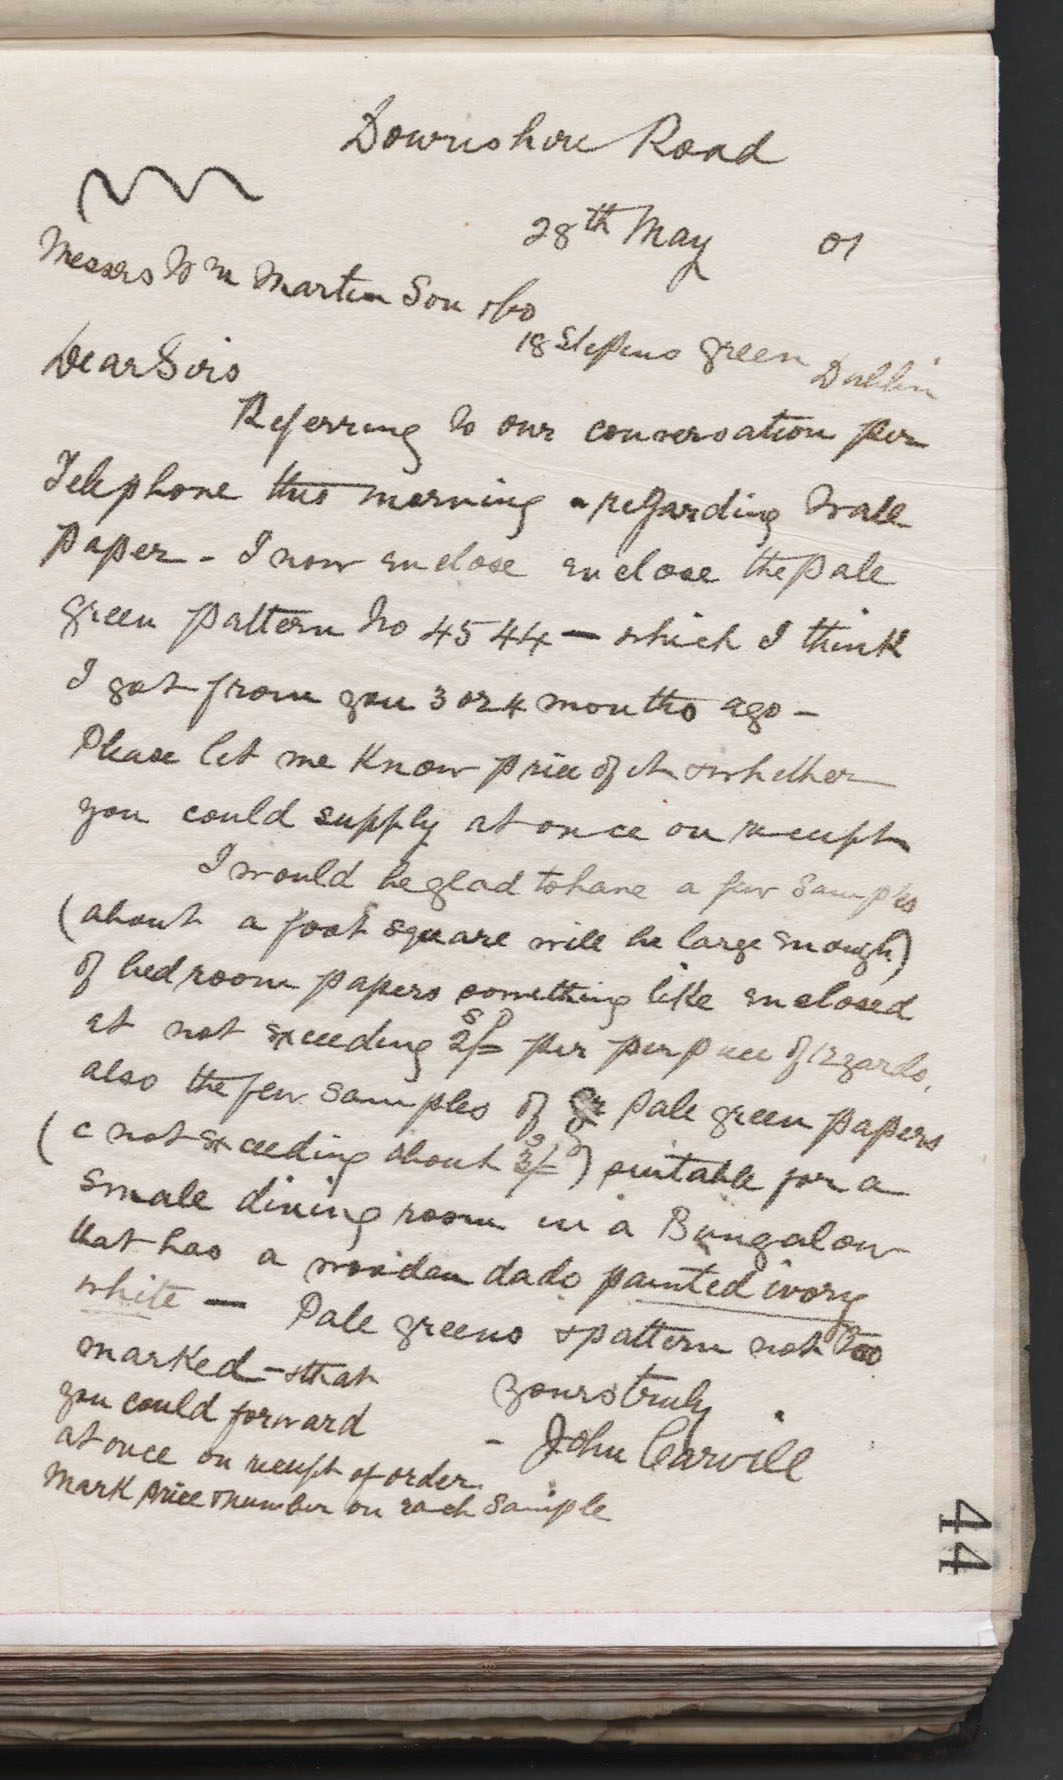 Downshire Road
28th May 01
Messrs Wm Martin Son & Co
18 Stephens Green Dublin
Dear Sirs
Referring to our conversation per
Telephone this morning - regarding Wall
Paper - I now enclose enclose the pale
green pattern No 4544 - which I think
I got from you 3 or 4 months ago -
Please let me know price of it & whether
you could supply at once on receipt
I would be glad to have a few samples
(about a foot square will be large enough)
of bedroom papers something like enclosed
at not exceeding 2/= per per piece of 12 yards.
also the few samples of Pale green papers
(c not exceeding about 3/=) suitable for a
small dining room in a Bungalow
that has a wooden dado painted ivory
white - Pale greens & pattern not too
marked - & that
you could forward
at once on receipt of order.
Mark price & number on each sample
Yours truly
- John Carvill
44